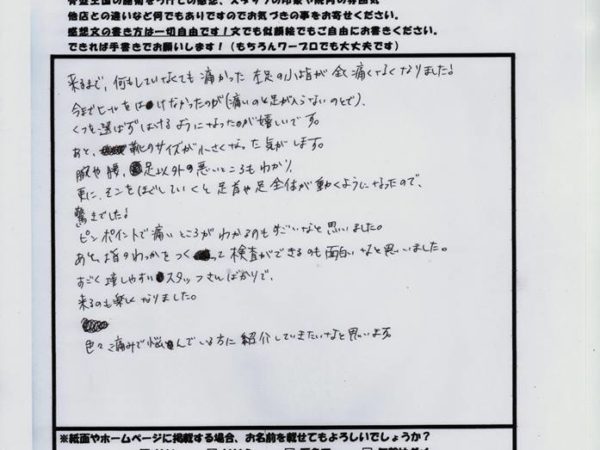 骨盤王国の施術を受けての感想、スタッフの印象や院内の雰囲気
他店との違いなど何でもありですのでお気づきの事をお寄せください。
感想文の書き方は一切自由です！文でも似顔絵でもご自由にお書きください。
できれば手書きでお願いします！（もちろんワープロでも大丈夫です）
来るまで、何もしていなくても痛かった左足の小指が全く痛くなくなりました！
今までヒールをはけなかったのが（痛いのと足が入らないので）、
くつを選ばずはけるようになったのが嬉しいです。
あと、靴のサイズが小さくなった気がします。
腕や腰、足以外の悪いところもわかり、
更に、そこをほぐしていくと足首や足全体が動くようになったので、
驚きでした！
ピンポイントで痛いところがわかるのもすごいなと思いました。
あと、指のわっかをつくって検査ができるのも面白いなと思いました。
すごく話しやすいスタッフさんばかりで、
来るのも楽しくなりました。
色々な痛みで悩んでいる方に紹介していきたいなと思います。
※紙面やホームページに掲載する場合、お名前を載せてもよろしいでしょうか？